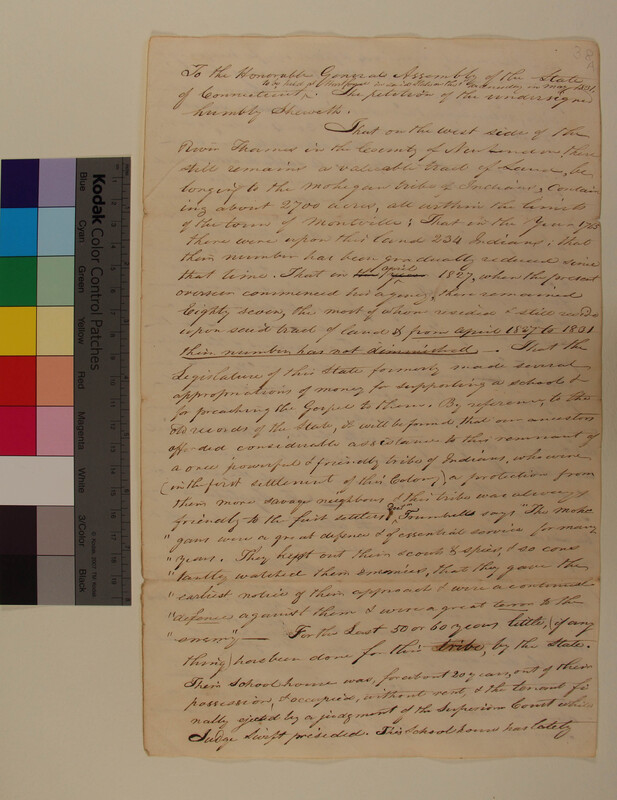 38
A
To the Honorable General Assembly of the State
to be held at Hartford in said State on the 1st Wednesday in May 1831.
of Connecticut ^. The petition of the undersigned
humbly Sheweth.
That on the west side of the
River Thames in the County of New London there
still remains a valuable tract of Land, be
longing to the Mohegan tribe of Indians, contain
ing about 2700 acres, all within the limits
of the town of Montville; That in the Year 1765
there were upon this land 234 Indians; that
their number has been gradually reduced since
that time. That in April 1827, when the present
overseer commenced his agency, there remained
Eighty seven, the most of whom resided & still reside
upon said tract of land & from April 1827 to 1831
their number has not diminished —. That the
Legislature of this State formerly made several
appropriations of money for supporting a school &
for preaching the Gospel to them. By reference, to the
old records of the State, it will be found, that our ancestors
afforded considerable assistance to this remnant of
a once powerful & friendly tribe of Indians, who were
(in the first settlement of this Colony,) a protection from
them more savage neighbours & this tribe was always
friendly to the first settlers. Trumbull says "The Mohe
" gans were a great defence & of essential service for many
" years. They kept out their scouts & spies, & so cons
" tantly watched them enemies, that they gave the
" earliest notice of their approach & were a continual
" defence against them & were a great terror to the
" enemy — For the Last 50 or 60 years little, (if any
thing) has been done for this tribe, by the State.
Their School house was, for about 20 years, out of their
possession, & occupied, without rent, & the tenant fi
nally ejected by a judgment of the Superior Court where
Judge Swift presided. This School house has lately
Kodak Color Control Patches
Blue
Cyan
Green
Yellow
Red
Magenta
White
3/Color
Black